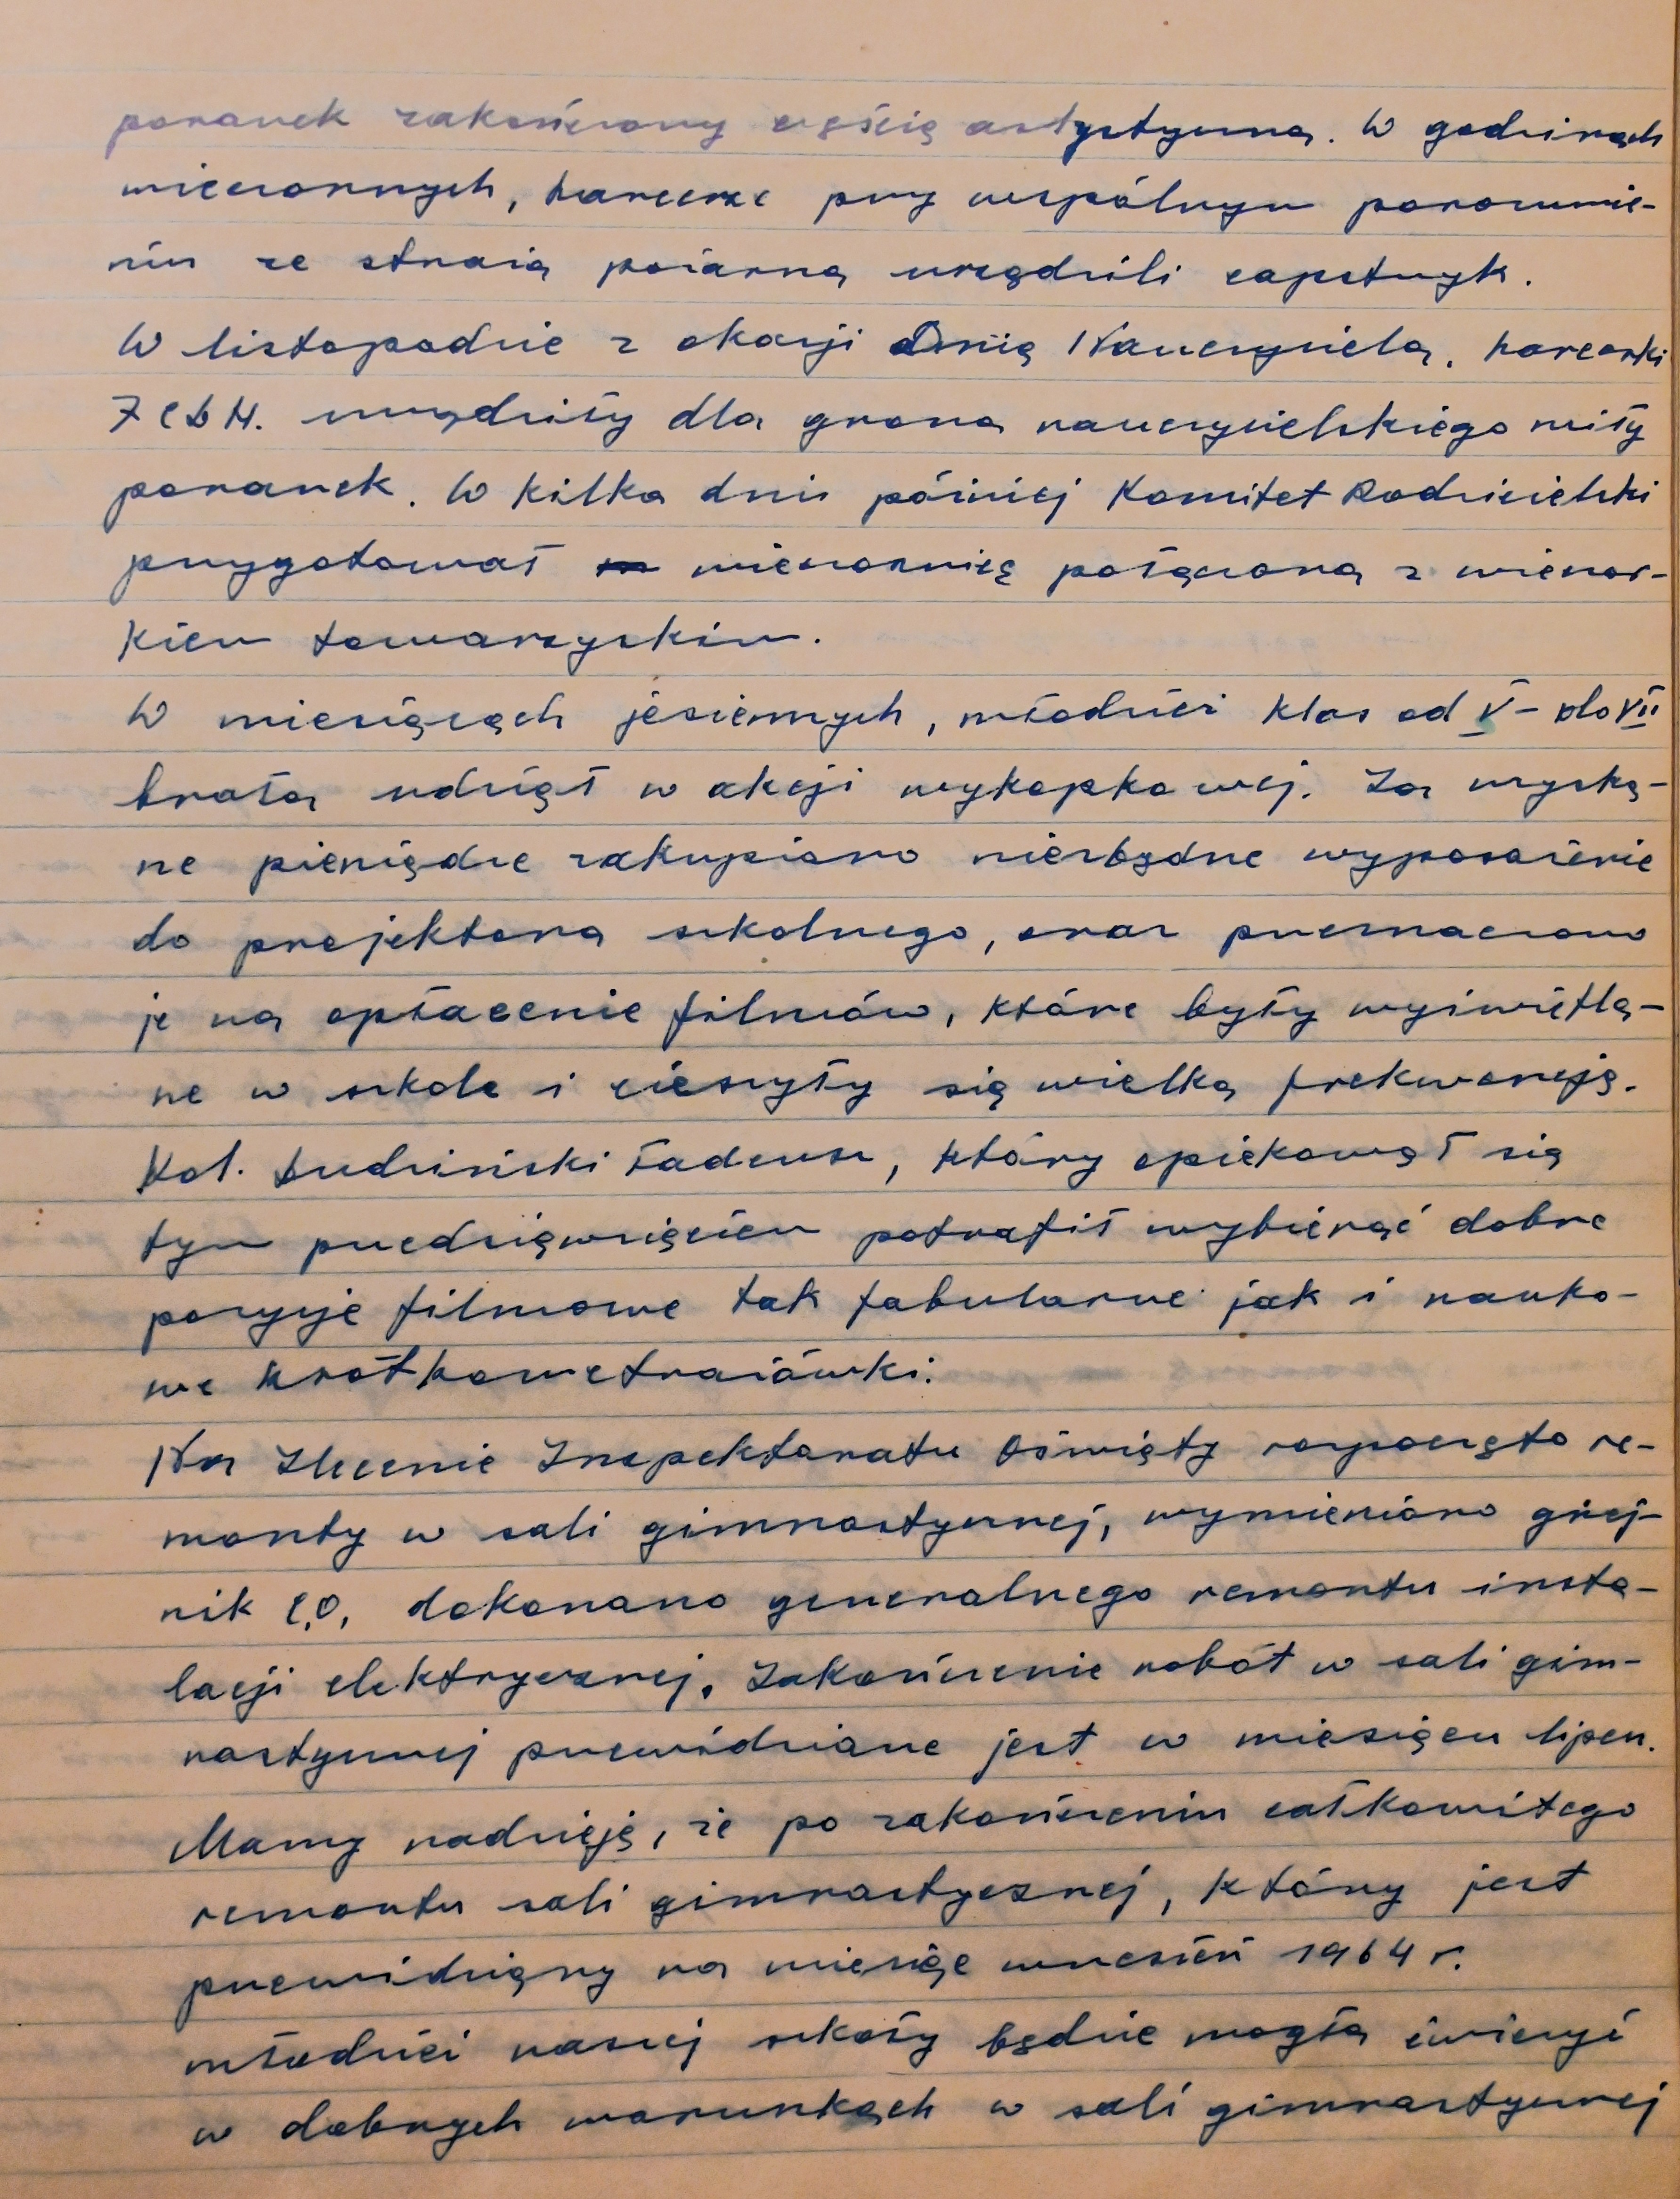 poranek zakończony częścią artystyczną. W godzinach
wieczornych, harcerze przy wspólnym porozumie-
niu ze strażą pożarną urządzili capstrzyk.
W listopadzie z okazji Dnia Nauczyciela, harcerki
7 CDH. urządziły dla grona nauczycielskiego miły
poranek. W kilka dni później Komitet Rodzicielski
przygotował wieczornicę połączoną z wieczor-
kiem towarzyskim.
W miesiącach jesiennych, młodzież klas od V - do VII
brała udział w akcji wykopkowej. Za uzyska-
ne pieniądze zakupiono niezbędne wyposażenie
do projektora szkolnego, oraz przeznaczono
je na opłacenie filmów, które były wyświetla-
ne w szkole i cieszyły się wielką frekwencją.
Kol. Dudziński Tadeusz, który opiekował się
tym przedsięwzięciem potrafił wybierać dobre
pozycje filmowe tak fabularne jak i nauko-
we krótkometrażówki.
Na Zlecenie Inspektoratu Oświaty rozpoczęto re-
monty w sali gimnastycznej, wymieniono grzej-
nik C.O. dokonano generalnego remontu insta-
lacji elektrycznej. Zakończenie robót w sali gim-
nastycznej przewidziane jest w miesiącu lipcu.
Mamy nadzieję, że po zakończeniu całkowitego
remontu sali gimnastycznej, który jest
przewidziany na miesiąc wrzesień 1964 r.
młodzież naszej szkoły będzie mogła ćwiczyć
w dobrych warunkach w sali gimnastycznej